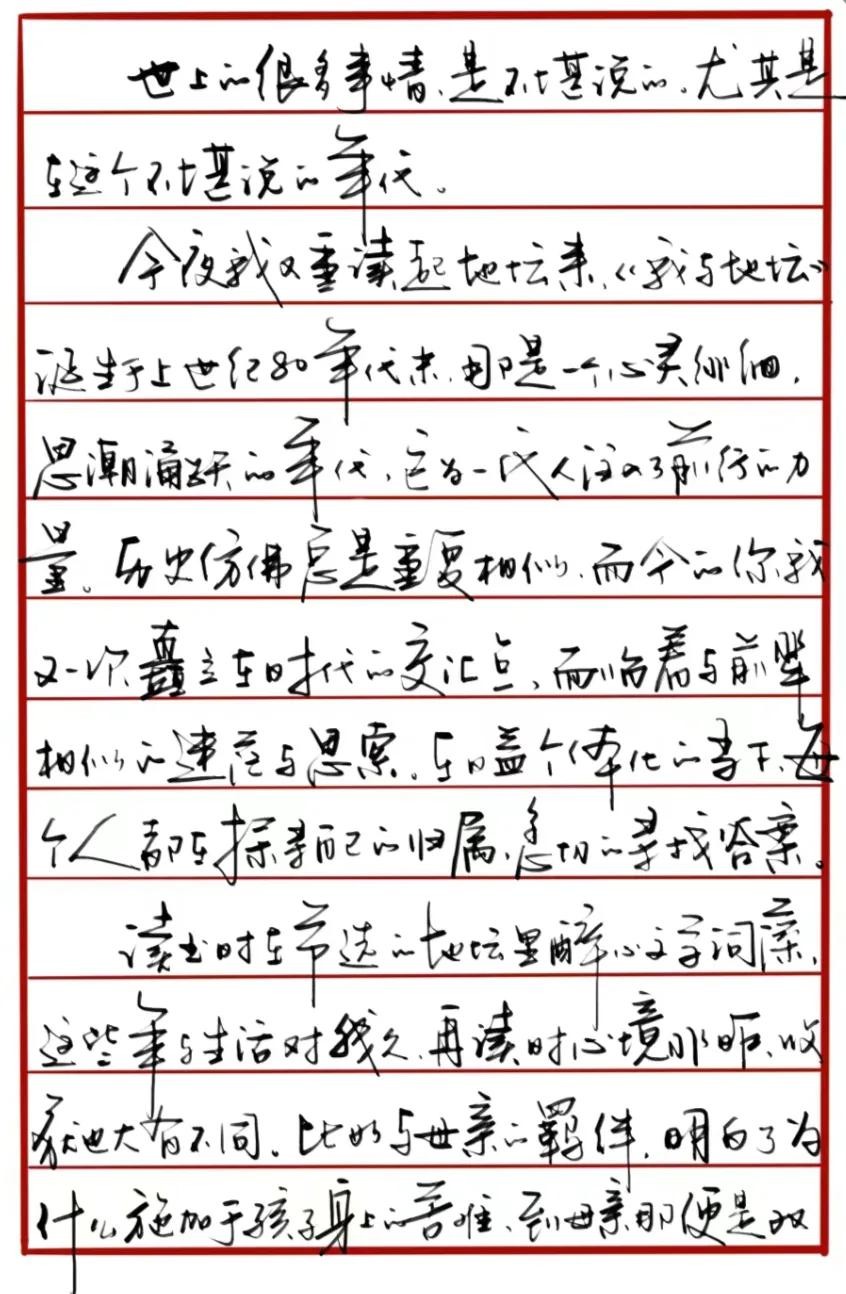 世上的很多事情,是不堪说的,尤其是
在这个不堪说的年代。
今夜我又重读起地坛来,《我与地坛》
诞生于上世纪80年代末,那是一个心灵细,
思潮涌跃的年代,它为一代人注入了前行的力
量。历史仿佛总是重要相似,而今的你我
又一次矗立在时代的交汇点,面临着与前辈
相似的迷茫与思索。在日益个体化的当下,每
个人都在探寻自己的归属,急切的寻找答案。
读书时在节选的地坛里醉心文字词藻,
这些年与生活对我久,再读时心境非昨,收
获也大有不同。比如与母亲的羁绊,明白了为
什么施加于孩子身上的苦难,到母亲那便是双